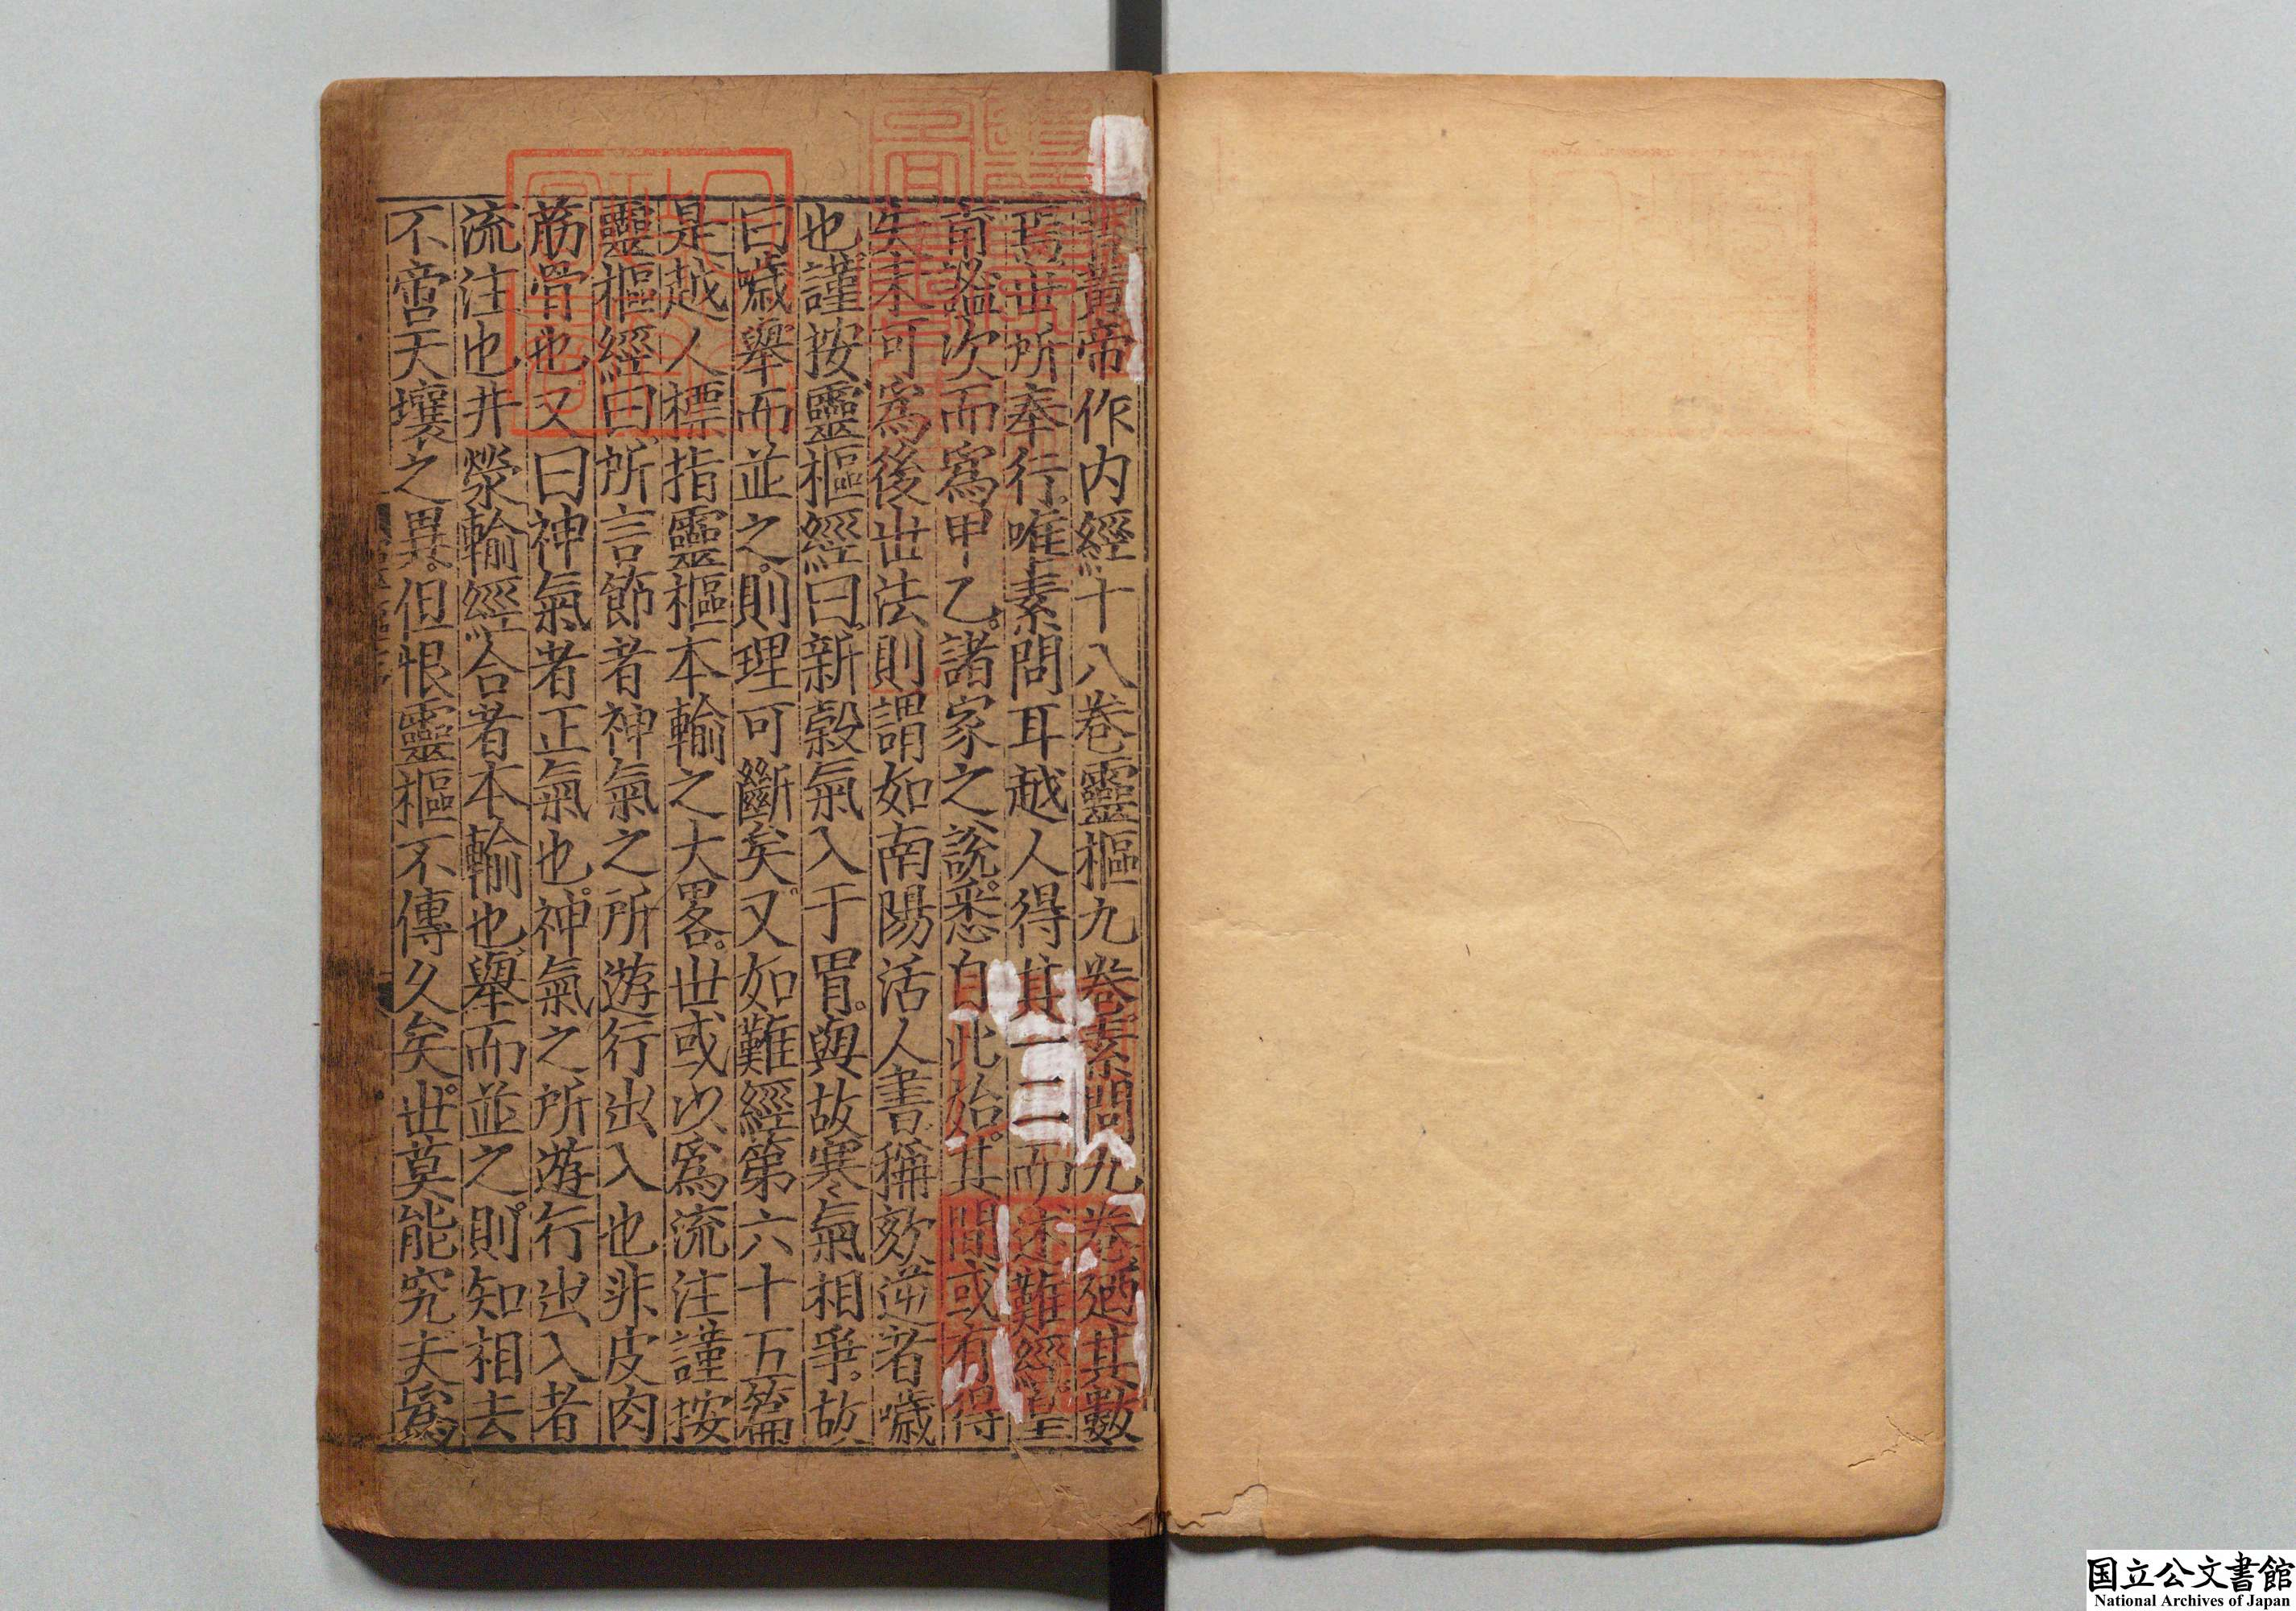 昔黃帝作内經十八卷靈樞九卷素問九卷廼其數
焉世所奉行唯素問耳越人得其一二而述難經皇
甫謐次而爲甲乙諸家之說悉自此始其間或有得
失未可爲後世法則謂如南陽活人書稱欬逆者噦
也謹按靈樞經曰新穀氣入于胃與故寒氣相爭故
曰噦舉而並之則理可斷矣又如難經第六十五篇
是越人標指靈樞本輸之大畧世或以爲流注謹按
靈樞經曰所言節者神氣之所遊行出入也非皮肉
筋骨也又曰神氣者正氣也神氣之所遊行出入者
流注也井滎輸經合者本輸也舉而並之則知相去
不啻天壤之異但恨靈樞不傳久矣世莫能究夫爲
国立公文書館
National Archives of Japan